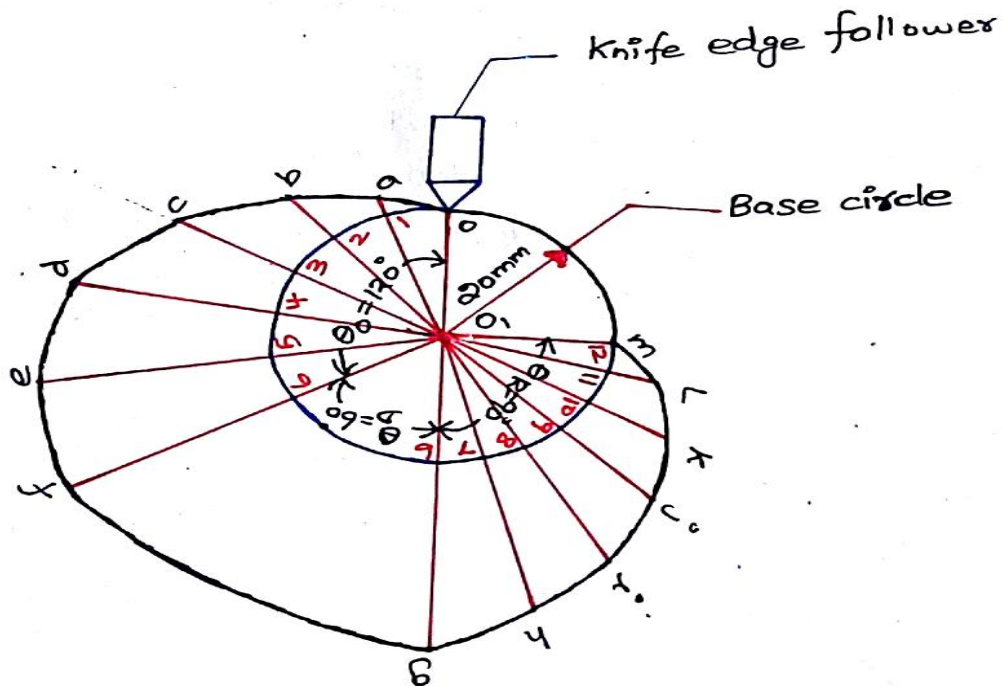 Knife edge follower
Base circle
a
b
c
d
e
f
g
h
i
j
K
L
m
0
1
2
3
4
5
6
6
7
8
9
10
11
12
20mm
O₁
θo=120°
θ=60
θR=90°